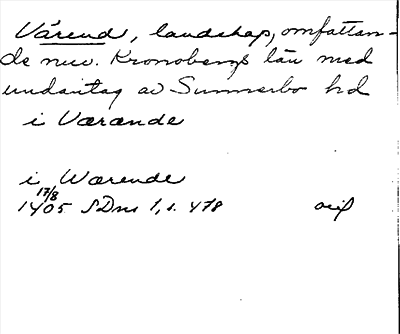 Värend, landskap, omfattan-
de nuv. Kronobergs län med
undantag av Sunnerbo hd
i Værænde
i Wærende
17/8
1405 SDns 1, s. 478 orig